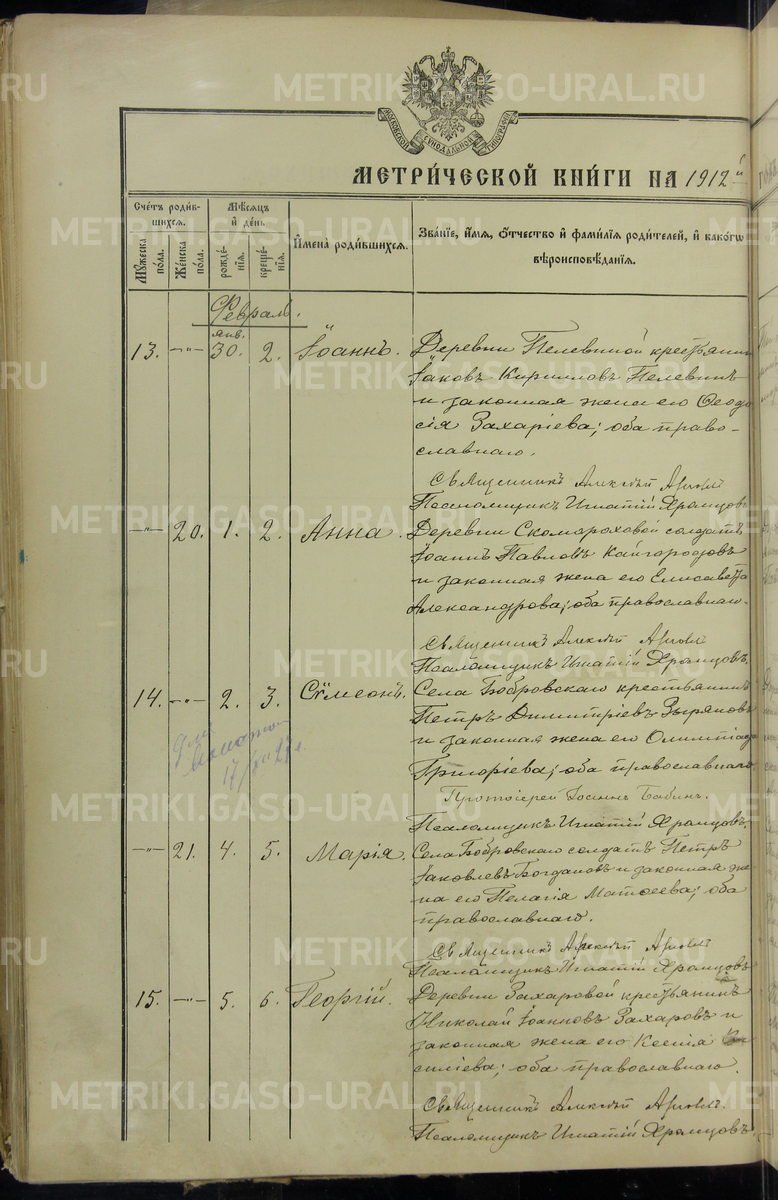 МОСКОВСКОЙ СѴНОДАЛЬНОЙ ТИПОГРАФІИ
МЕТРИ́ЧЕСКОЙ КНИ́ГИ НА 1912й
Сче́тъ роди́в-
шихся.
Мꙋ́жеска по́ла.
Же́нска по́ла.
Мѣ́сяцъ
и҆ де́нь.
рожде́-
нїя.
креще́-
нїя.
И҆мена̀ роди́вшихся.
Зва́нїе, и҆́мя, ѻ҆́тчество и҆ фами́лїя роди́телей, и҆ како́гѡ
вѣроисповѣ́данїя.
Февраль.
янв.
13. —"— 30. 2. Іоаннъ. Деревни Пелевиной крестьянинъ
Іаковъ Кирилловъ Пелевинъ
и законная жена его Ѳеодо
сія Захаріева; оба право-
славнаго.
Священникъ Алексѣй
Псаломщикъ Игнатій Храмцовъ
—"— 20. 1. 2. Анна. Деревни Скомороховой солдатъ
Іоаннъ Павловъ Кайгородовъ
и законная жена его Елисавета
Александрова; оба православнаго.
Священникъ Алексѣй
Псаломщикъ Игнатій Храмцовъ.
14. —"— 2. 3. Сѵмеонъ. Села Бобровскаго крестьянинъ
Петръ Димитріевъ Зыряновъ
и законная жена его Олимпіада
Григоріева; оба православнаго
Протоіерей Іоаннъ Бабинъ.
Псаломщикъ Игнатій Храмцовъ.
—"— 21. 4. 5. Марія. Села Бобровскаго солдатъ Петръ
Іаковлевъ Богдановъ и законная же
на его Пелагія Матѳеева; оба
православнаго.
Священникъ Алексѣй
Псаломщикъ Игнатій Храмцовъ
15. —"— 5. 6. Георгій. Деревни Захаровой крестьянинъ
Николай Іоанновъ Захаровъ и
законная жена его Ксенія Ва
силіева; оба православнаго.
Священникъ Алексѣй
Псаломщикъ Игнатій Храмцовъ
METRIKI.GASO-URAL.RU